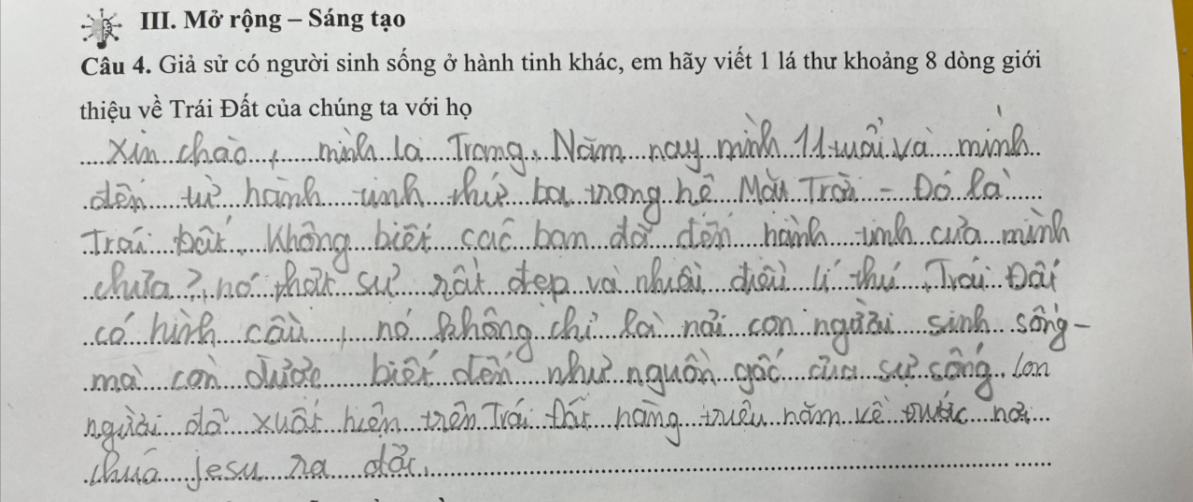 III. Mở rộng – Sáng tạo
Câu 4. Giả sử có người sinh sống ở hành tinh khác, em hãy viết 1 lá thư khoảng 8 dòng giới
thiệu về Trái Đất của chúng ta với họ
Xin chào, mình là Trang, Năm nay mình 11 tuổi và mình
đến từ hành tinh thứ ba trong hệ Mặt Trời - Đó là
Trái Đất. Không biết các bạn đã đến hành tinh của mình
chưa?, nó thật sự rất đẹp và nhiều điều lí thú, Trái Đất
có hình cầu, nó không chỉ là nơi con người sinh sống -
mà còn được biết đến như nguồn gốc của sự sống. Con
người đã xuất hiện trên Trái Đất hàng triệu năm về trước nơi
chúa Jesu ra đời.